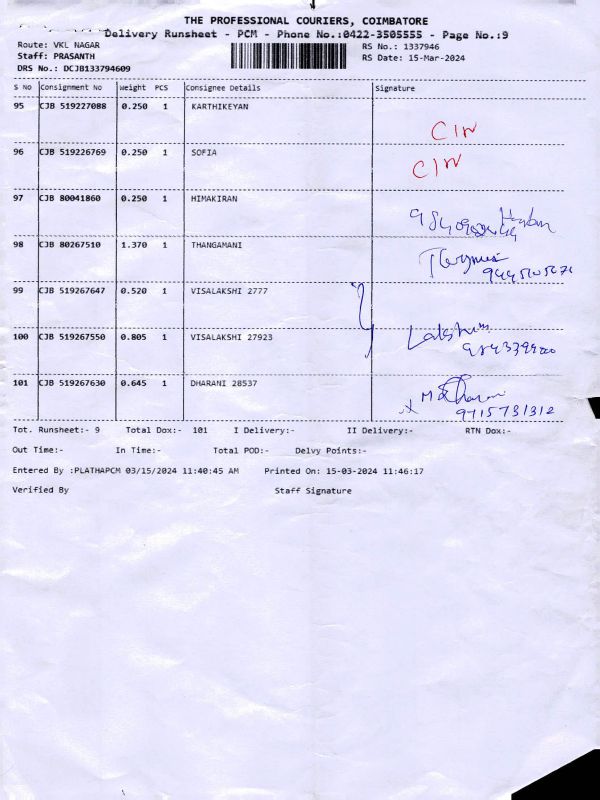 THE PROFESSIONAL COURIERS, COIMBATORE
Delivery Runsheet - PCM - Phone No.:0422-3505555 - Page No.:9
Route: VKL NAGAR RS No.: 1337946
Staff: PRASANTH RS Date: 15-Mar-2024
DRS No.: DCJB133794609
S No Consignment No Weight PCS Consignee Details Signature
95 CJB 519227088 0.250 1 KARTHIKEYAN
CIN
96 CJB 519226769 0.250 1 SOFIA
CIN
97 CJB 80041860 0.250 1 HIMAKIRAN
98 CJB 80267510 1.370 1 THANGAMANI
99 CJB 519267647 0.520 1 VISALAKSHI 2777
100 CJB 519267550 0.805 1 VISALAKSHI 27923
101 CJB 519267630 0.645 1 DHARANI 28537
M Dharani
9715731312
Tot. Runsheet:- 9 Total Dox:- 101 I Delivery:- II Delivery:- RTN Dox:-
Out Time:- In Time:- Total POD:- Delvy Points:-
Entered By :PLATHAPCM 03/15/2024 11:40:45 AM Printed On: 15-03-2024 11:46:17
Verified By Staff Signature